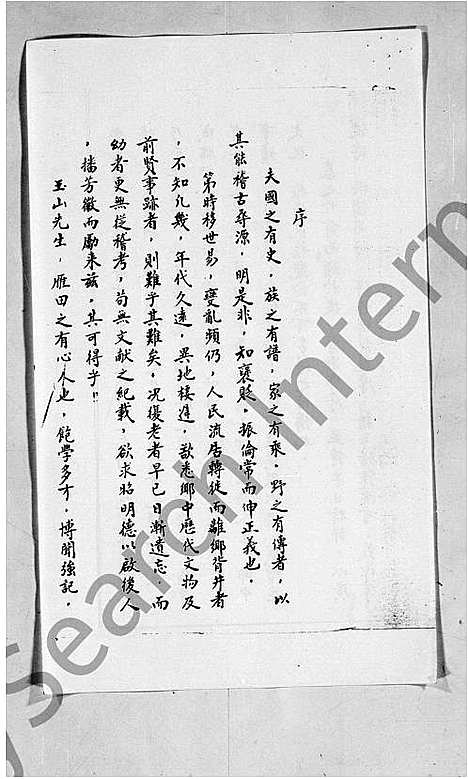 序
夫國之有史，族之有譜，家之有乘，野之有傳者，以
其能稽古尋源，明是非，知褒貶，振倫常而伸正義也。
第時移世易，變亂頻仍，人民流居轉徙而離鄉背井者
，不知凡幾，年代久遠，異地棲遲，欲悉鄉中歷代文物及
前賢事跡者，則難乎其難矣。况復老者早已日漸遺忘，而
幼者更無從稽考，苟無文献之紀載，欲求昭明德以啟後人
，播芳徽而勵来兹，其可得乎!!
玉山先生，雁田之有心人也，飽學多才，博聞強記，
Search Intern